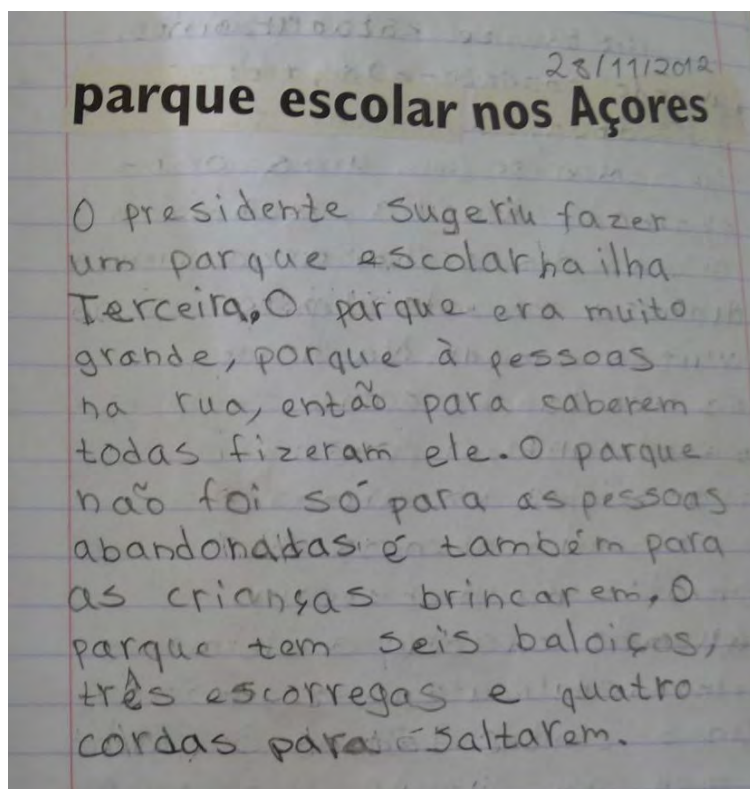 28/11/2012
parque escolar nos Açores
O presidente sugeriu fazer
um parque escolar na ilha
Terceira. O parque era muito
grande, porque à pessoas
na rua, então para caberem
todas fizeram ele. O parque
não foi só para as pessoas
abandonadas é também para
as crianças brincarem. O
parque tem seis baloiços,
três escorregas e quatro
cordas para saltarem.